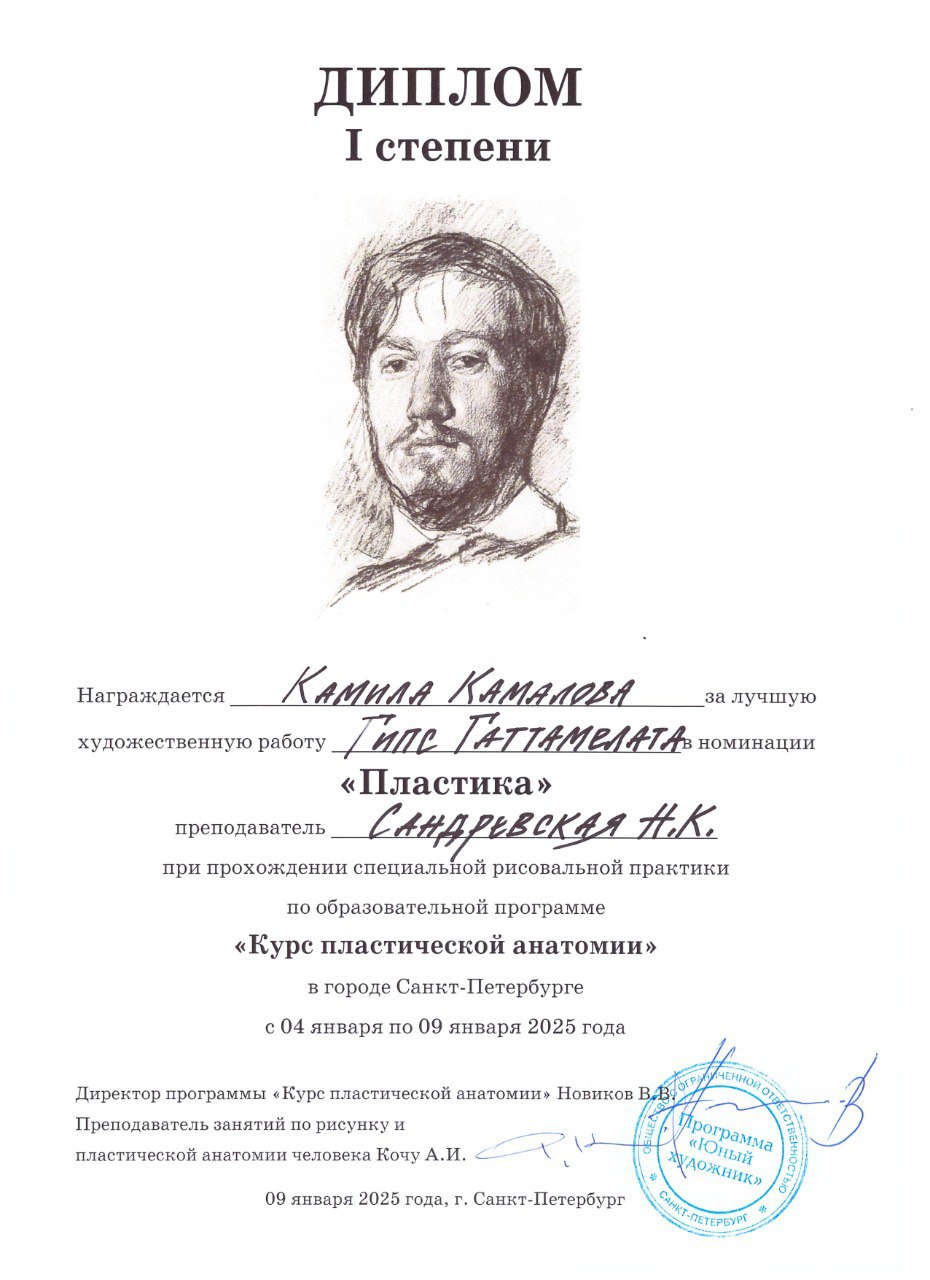 ДИПЛОМ
I степени
Награждается Камила Камалова за лучшую
художественную работу Гипс Гаттамелата в номинации
«Пластика»
преподаватель Сандревская Н.К.
при прохождении специальной рисовальной практики
по образовательной программе
«Курс пластической анатомии»
в городе Санкт-Петербурге
с 04 января по 09 января 2025 года
Директор программы «Курс пластической анатомии» Новиков В.В.
Преподаватель занятий по рисунку и
пластической анатомии человека Кочу А.И.
09 января 2025 года, г. Санкт-Петербург
ОБЩЕСТВО С ОГРАНИЧЕННОЙ ОТВЕТСТВЕННОСТЬЮ
Программа
«Юный
художник»
* САНКТ-ПЕТЕРБУРГ *